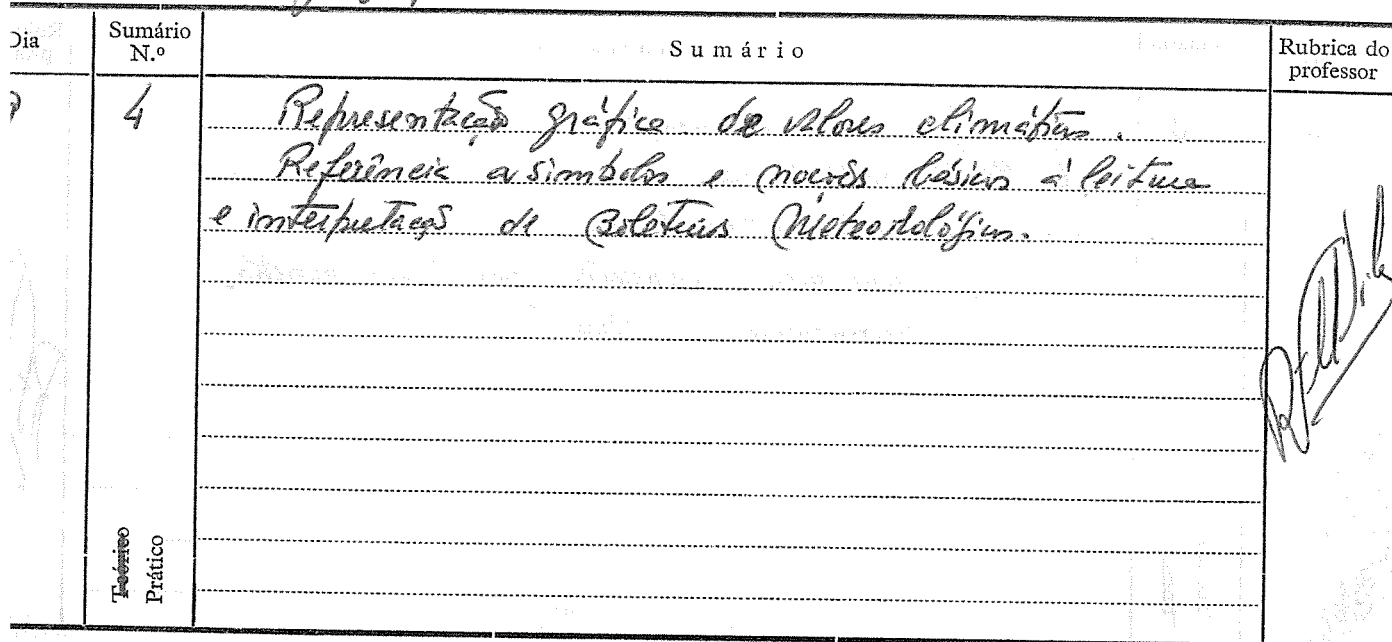 Dia
Sumário N.º
Sumário
Rubrica do professor
4
Representação gráfica de valores climáticos.
Referência a símbolos e noções básicas à leitura
e interpretação de Boletins Meteorológicos.
Teórico
Prático